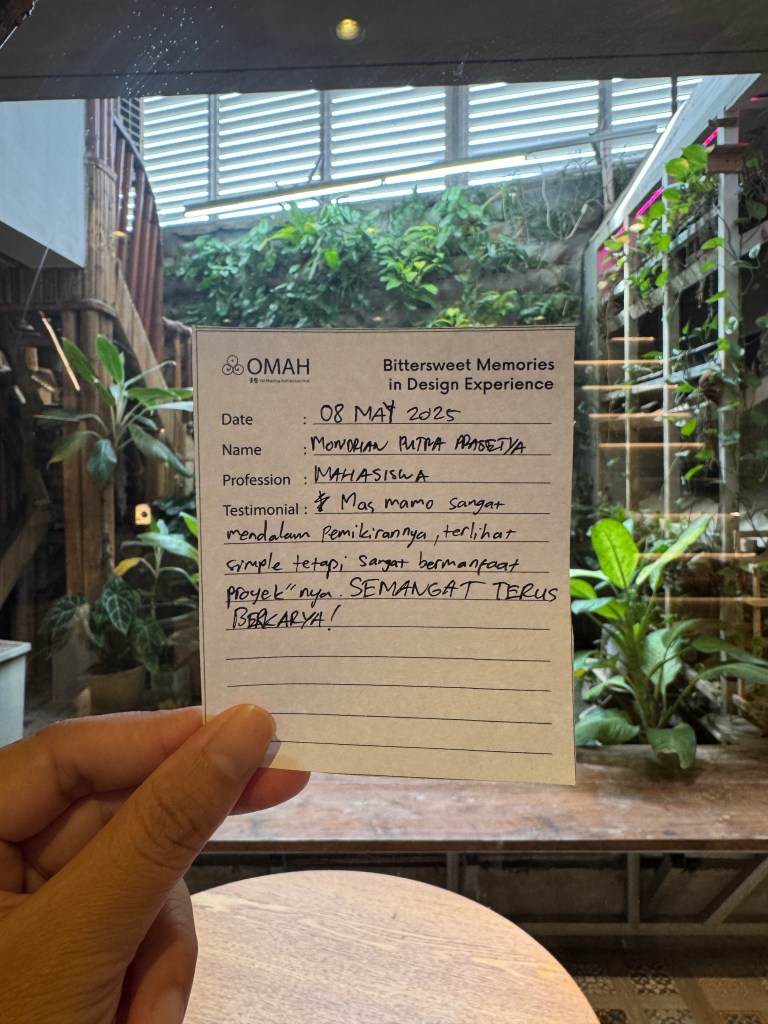 OMAH
Bittersweet Memories
in Design Experience
Date : 08 MAY 2025
Name : MONDRIAN PUTRA PRASETYA
Profession : MAHASISWA
Testimonial : Mas mamo sangat
mendalam pemikirannya, terlihat
simple tetapi sangat bermanfaat
proyek"nya. SEMANGAT TERUS
BERKARYA!